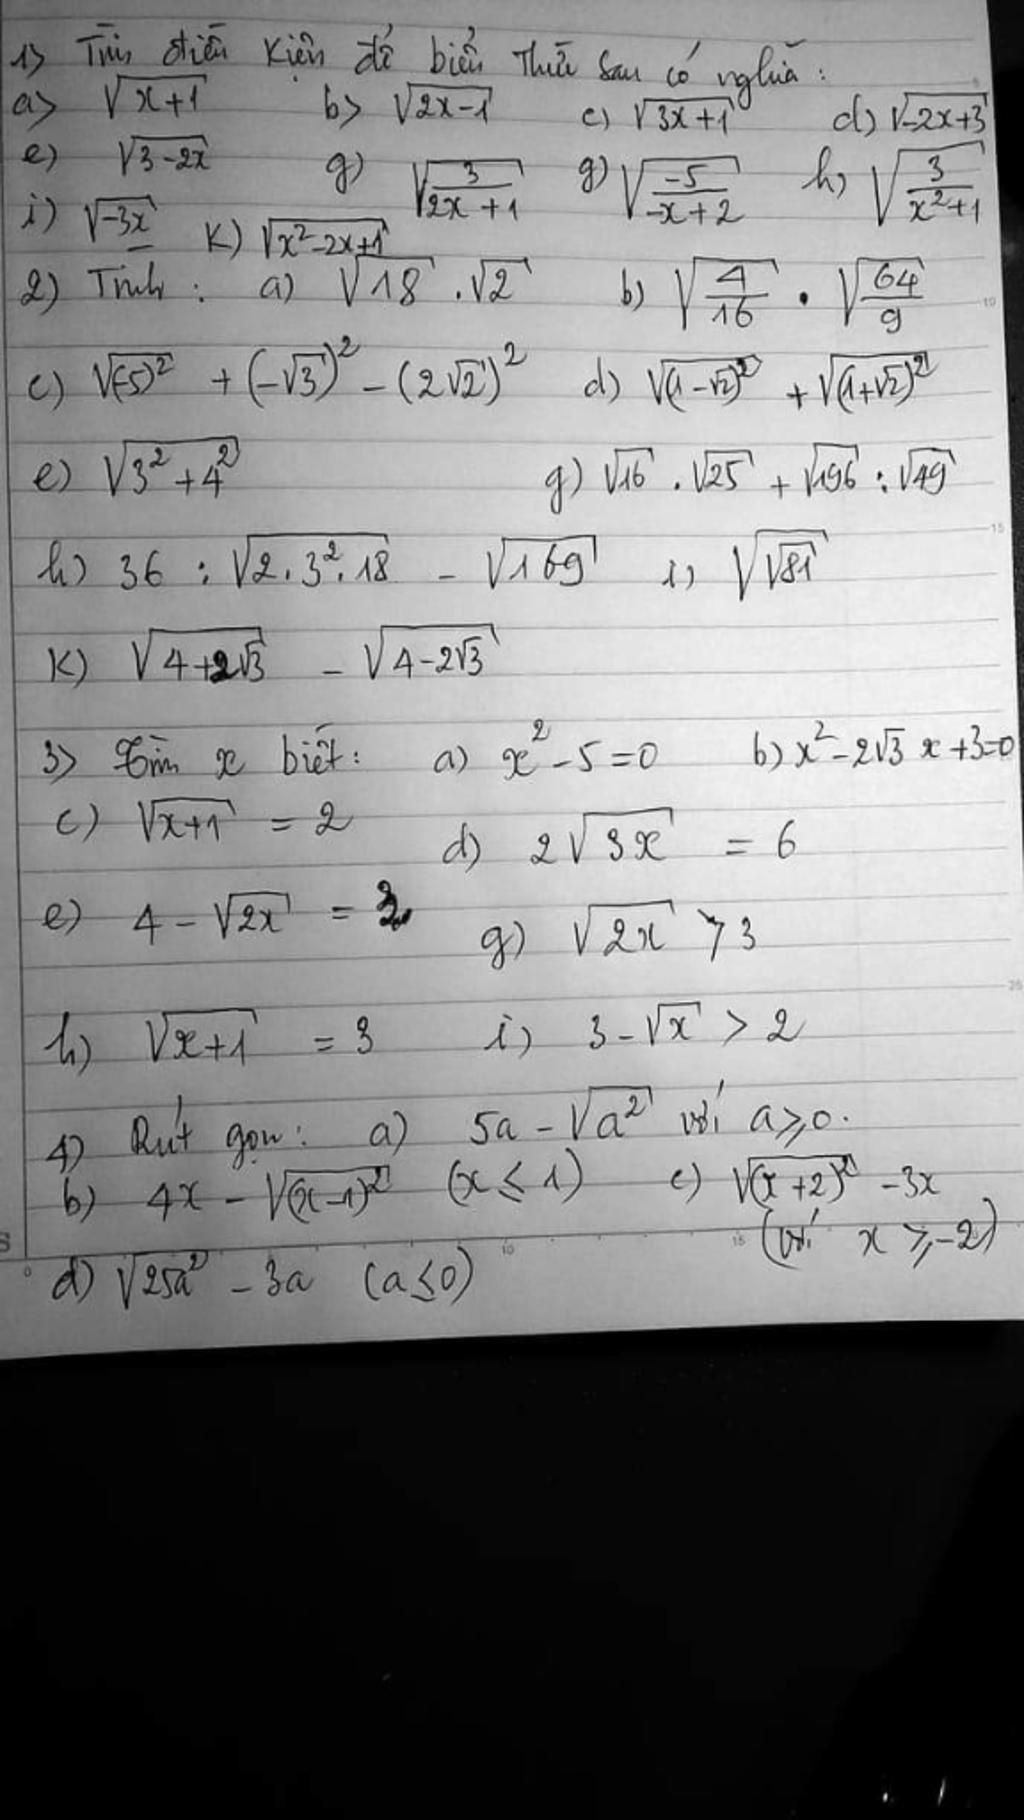 1) Tìm điều kiện để biểu thức sau có nghĩa :
a) √(x+1)   b) √(2x-1)   c) √(3x+1)   d) √(-2x+3)
e) √(3-2x)   g) √(3/(2x+1))   g) √(-5/(-x+2))   h) √(3/(x²+1))
i) √(-3x)   K) √(x²-2x+1)
2) Tính : a) √18 . √2   b) √(4/16) . √(64/9)
c) √(-5)² + (-√3)² - (2√2)²   d) √(1-√2)² + √(1+√2)²
e) √(3²+4²)   g) √16 . √25 + √196 : √49
h) 36 : √(2.3².18) - √169   i) √√81
K) √(4+2√3) - √(4-2√3)
3) Tìm x biết: a) x²-5=0   b) x²-2√3 x+3=0
c) √(x+1) = 2   d) 2√(3x) = 6
e) 4-√(2x) =   g) √(2x) > 3
h) √(x+1) = 3   i) 3-√x > 2
4) Rút gọn: a) 5a - √a² với a≥0.
b) 4x - √(x-1)² (x ≤ 1)   c) √(x+2)² - 3x
(với x ≥ -2)
d) √25a² - 3a (a≤0)